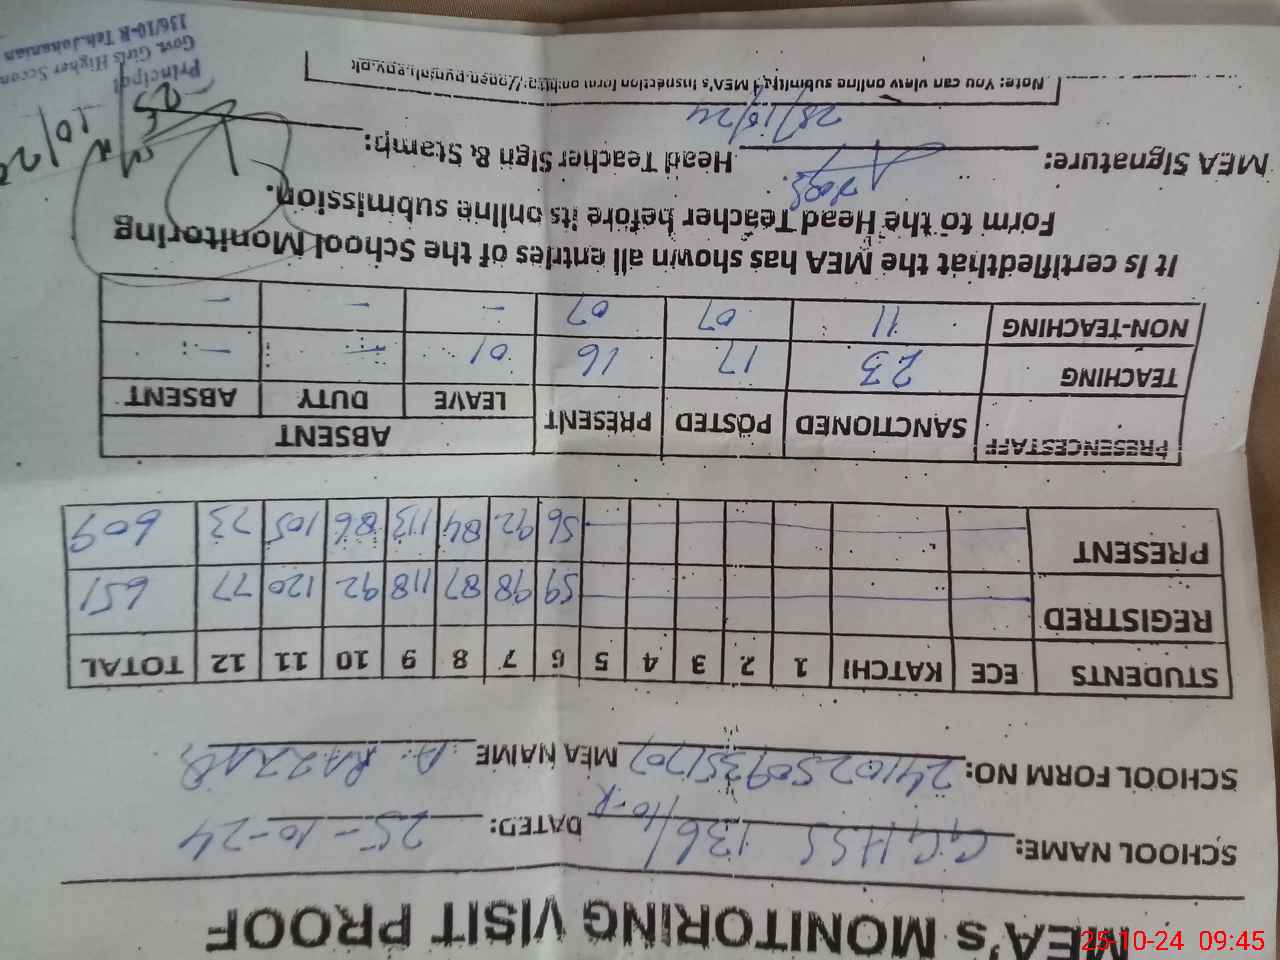 MEA's MONITORING VISIT PROOF
SCHOOL NAME: GGHSS 136/10-R DATED: 25-10-24
SCHOOL FORM NO: MEA NAME A. RAZZAQ
STUDENTS ECE KATCHI 1 2 3 4 5 6 7 8 9 10 11 12 TOTAL
REGISTRED 59 98 87 118 92 120 77 651
PRESENT 56 92 84 113 86 105 73 609
PRESENCESTAFF SANCTIONED POSTED PRESENT ABSENT
LEAVE DUTY ABSENT
TEACHING 23 17 16 01 - -
NON-TEACHING 11 07 07 - - -
It is certifiedthat the MEA has shown all entries of the School Monitoring
Form to the Head Teacher before its online submission.
MEA Signature: Head Teacher Sign & Stamp:
Note: You can view online submitted MEA's inspection form on
Principal
Govt. Girls Higher Secon
136/10-R Teh.Jahanian
25-10-24 09:45